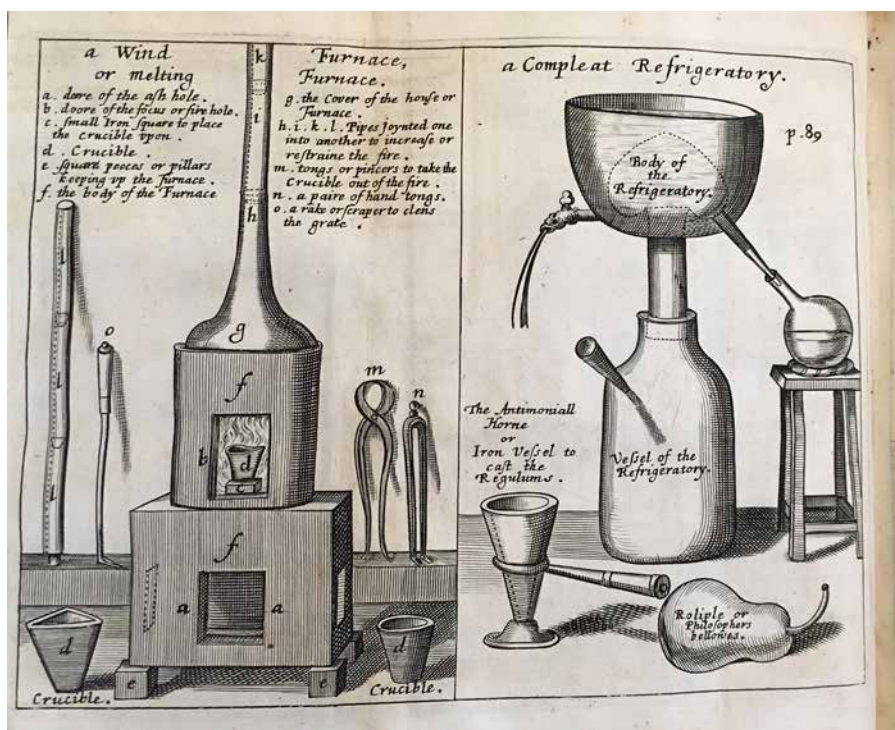 a Wind
or melting
a. doore of the ash hole.
b. doore of the focus or fire hole.
c. small Iron square to place
the Crucible vpon.
d. Crucible.
e square peeces or pillars
keeping vp the Furnace.
f. the body of the Furnace
Furnace,
Furnace.
g. the Cover of the house or
Furnace.
h. i. k. l. Pipes joynted one
into another to increase or
restraine the fire.
m. tongs or pincers to take the
Crucible out of the fire.
n. a paire of hand tongs.
o. a rake or scraper to clens
the grate.
k
i
h
l
l
l
o
g
f
m
n
b
d
c
f
a
a
d
d
e
e
Crucible.
Crucible.
a Compleat Refrigeratory.
p. 89
Body of
the
Refrigeratory.
The Antimoniall
Horne
or
Iron Vessel to
cast the
Regulums.
Vessel of the
Refrigeratory.
Roliple or
Philosophers
bellowes.